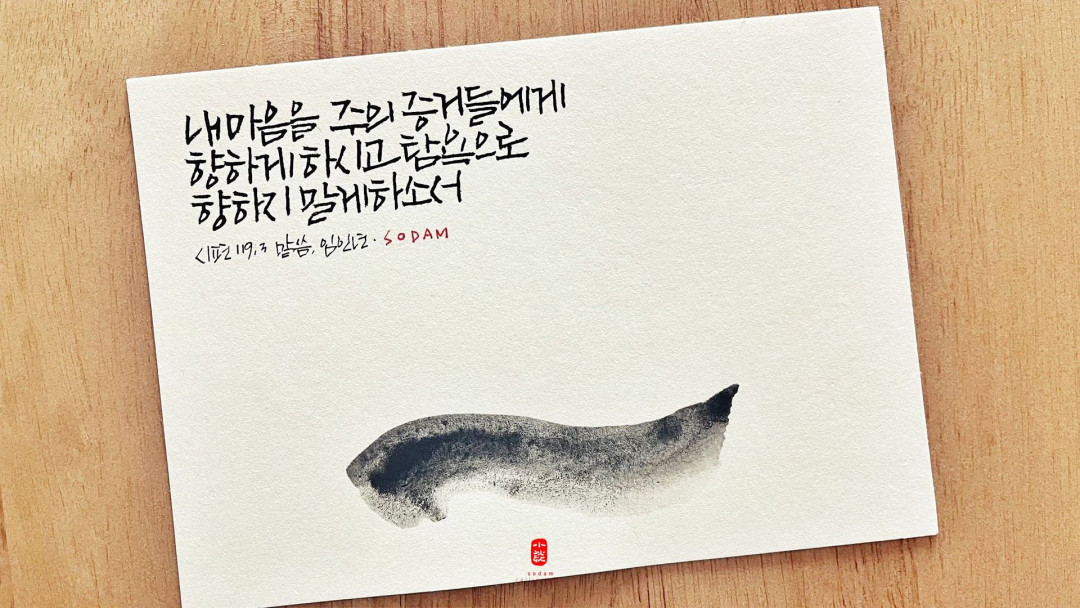 내 마음을 주의 증거들에게
향하게 하시고 탐욕으로
향하지 말게 하소서
시편 119.3 말씀, 임인년 · SODAM
小談
sodam